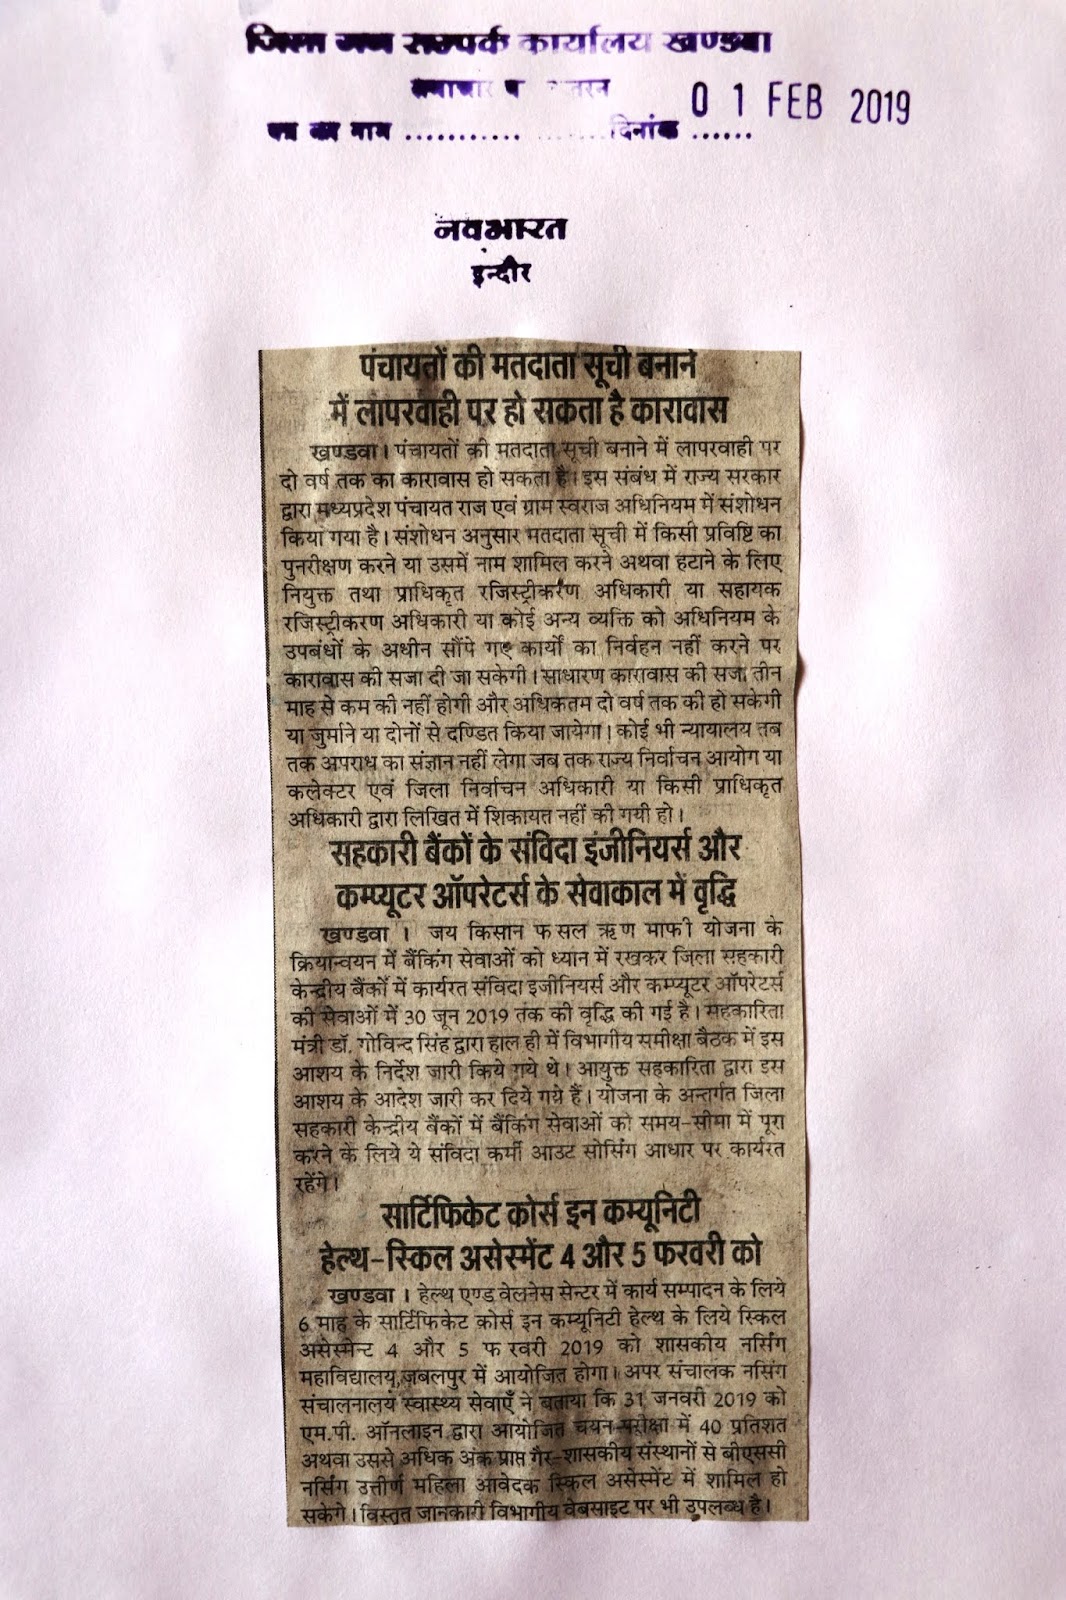 जिला जन सम्पर्क कार्यालय खण्डवा
समाचार
01 FEB 2019
पत्र का नाम ........... ......दिनांक ......
नवभारत
इन्दौर
पंचायतों की मतदाता सूची बनाने
में लापरवाही पर हो सकता है कारावास
खण्डवा। पंचायतों की मतदाता सूची बनाने में लापरवाही पर
दो वर्ष तक का कारावास हो सकता है। इस संबंध में राज्य सरकार
द्वारा मध्यप्रदेश पंचायत राज एवं ग्राम स्वराज अधिनियम में संशोधन
किया गया है। संशोधन अनुसार मतदाता सूची में किसी प्रविष्टि का
पुनरीक्षण करने या उसमें नाम शामिल करने अथवा हटाने के लिए
नियुक्त तथा प्राधिकृत रजिस्ट्रीकरण अधिकारी या सहायक
रजिस्ट्रीकरण अधिकारी या कोई अन्य व्यक्ति को अधिनियम के
उपबंधों के अधीन सौंपे गए कार्यों का निर्वहन नहीं करने पर
कारावास की सजा दी जा सकेगी। साधारण कारावास की सजा तीन
माह से कम की नहीं होगी और अधिकतम दो वर्ष तक की हो सकेगी
या जुर्माने या दोनों से दण्डित किया जायेगा। कोई भी न्यायालय तब
तक अपराध का संज्ञान नहीं लेगा जब तक राज्य निर्वाचन आयोग या
कलेक्टर एवं जिला निर्वाचन अधिकारी या किसी प्राधिकृत
अधिकारी द्वारा लिखित में शिकायत नहीं की गयी हो।
सहकारी बैंकों के संविदा इंजीनियर्स और
कम्प्यूटर ऑपरेटर्स के सेवाकाल में वृद्धि
खण्डवा । जय किसान फसल ऋण माफी योजना के
क्रियान्वयन में बैंकिंग सेवाओं को ध्यान में रखकर जिला सहकारी
केन्द्रीय बैंकों में कार्यरत संविदा इंजीनियर्स और कम्प्यूटर ऑपरेटर्स
की सेवाओं में 30 जून 2019 तक की वृद्धि की गई है। सहकारिता
मंत्री डॉ. गोविन्द सिंह द्वारा हाल ही में विभागीय समीक्षा बैठक में इस
आशय के निर्देश जारी किये गये थे। आयुक्त सहकारिता द्वारा इस
आशय के आदेश जारी कर दिये गये हैं। योजना के अन्तर्गत जिला
सहकारी केन्द्रीय बैंकों में बैंकिंग सेवाओं को समय-सीमा में पूरा
करने के लिये ये संविदा कर्मी आउट सोर्सिंग आधार पर कार्यरत
रहेंगे।
सार्टिफिकेट कोर्स इन कम्यूनिटी
हेल्थ-स्किल असेस्मेंट 4 और 5 फरवरी को
खण्डवा । हेल्थ एण्ड वेलनेस सेन्टर में कार्य सम्पादन के लिये
6 माह के सार्टिफिकेट कोर्स इन कम्यूनिटी हेल्थ के लिये स्किल
असेस्मेन्ट 4 और 5 फरवरी 2019 को शासकीय नर्सिंग
महाविद्यालय,जबलपुर में आयोजित होगा। अपर संचालक नर्सिंग
संचालनालय स्वास्थ्य सेवाएँ ने बताया कि 31 जनवरी 2019 को
एम.पी. ऑनलाइन द्वारा आयोजित चयन परीक्षा में 40 प्रतिशत
अथवा उससे अधिक अंक प्राप्त गैर-शासकीय संस्थानों से बीएससी
नर्सिंग उत्तीर्ण महिला आवेदक स्किल असेस्मेंट में शामिल हो
सकेगे। विस्तृत जानकारी विभागीय वेबसाइट पर भी उपलब्ध है।